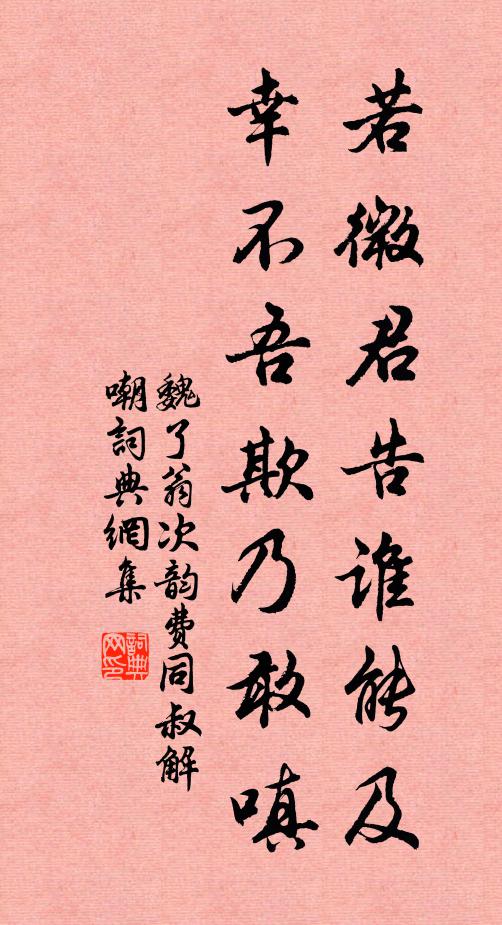 若微君告谁能及
幸不吾欺乃敢嗔
魏了翁次韵费同叔解
嘲詞典網集
詞典
网印